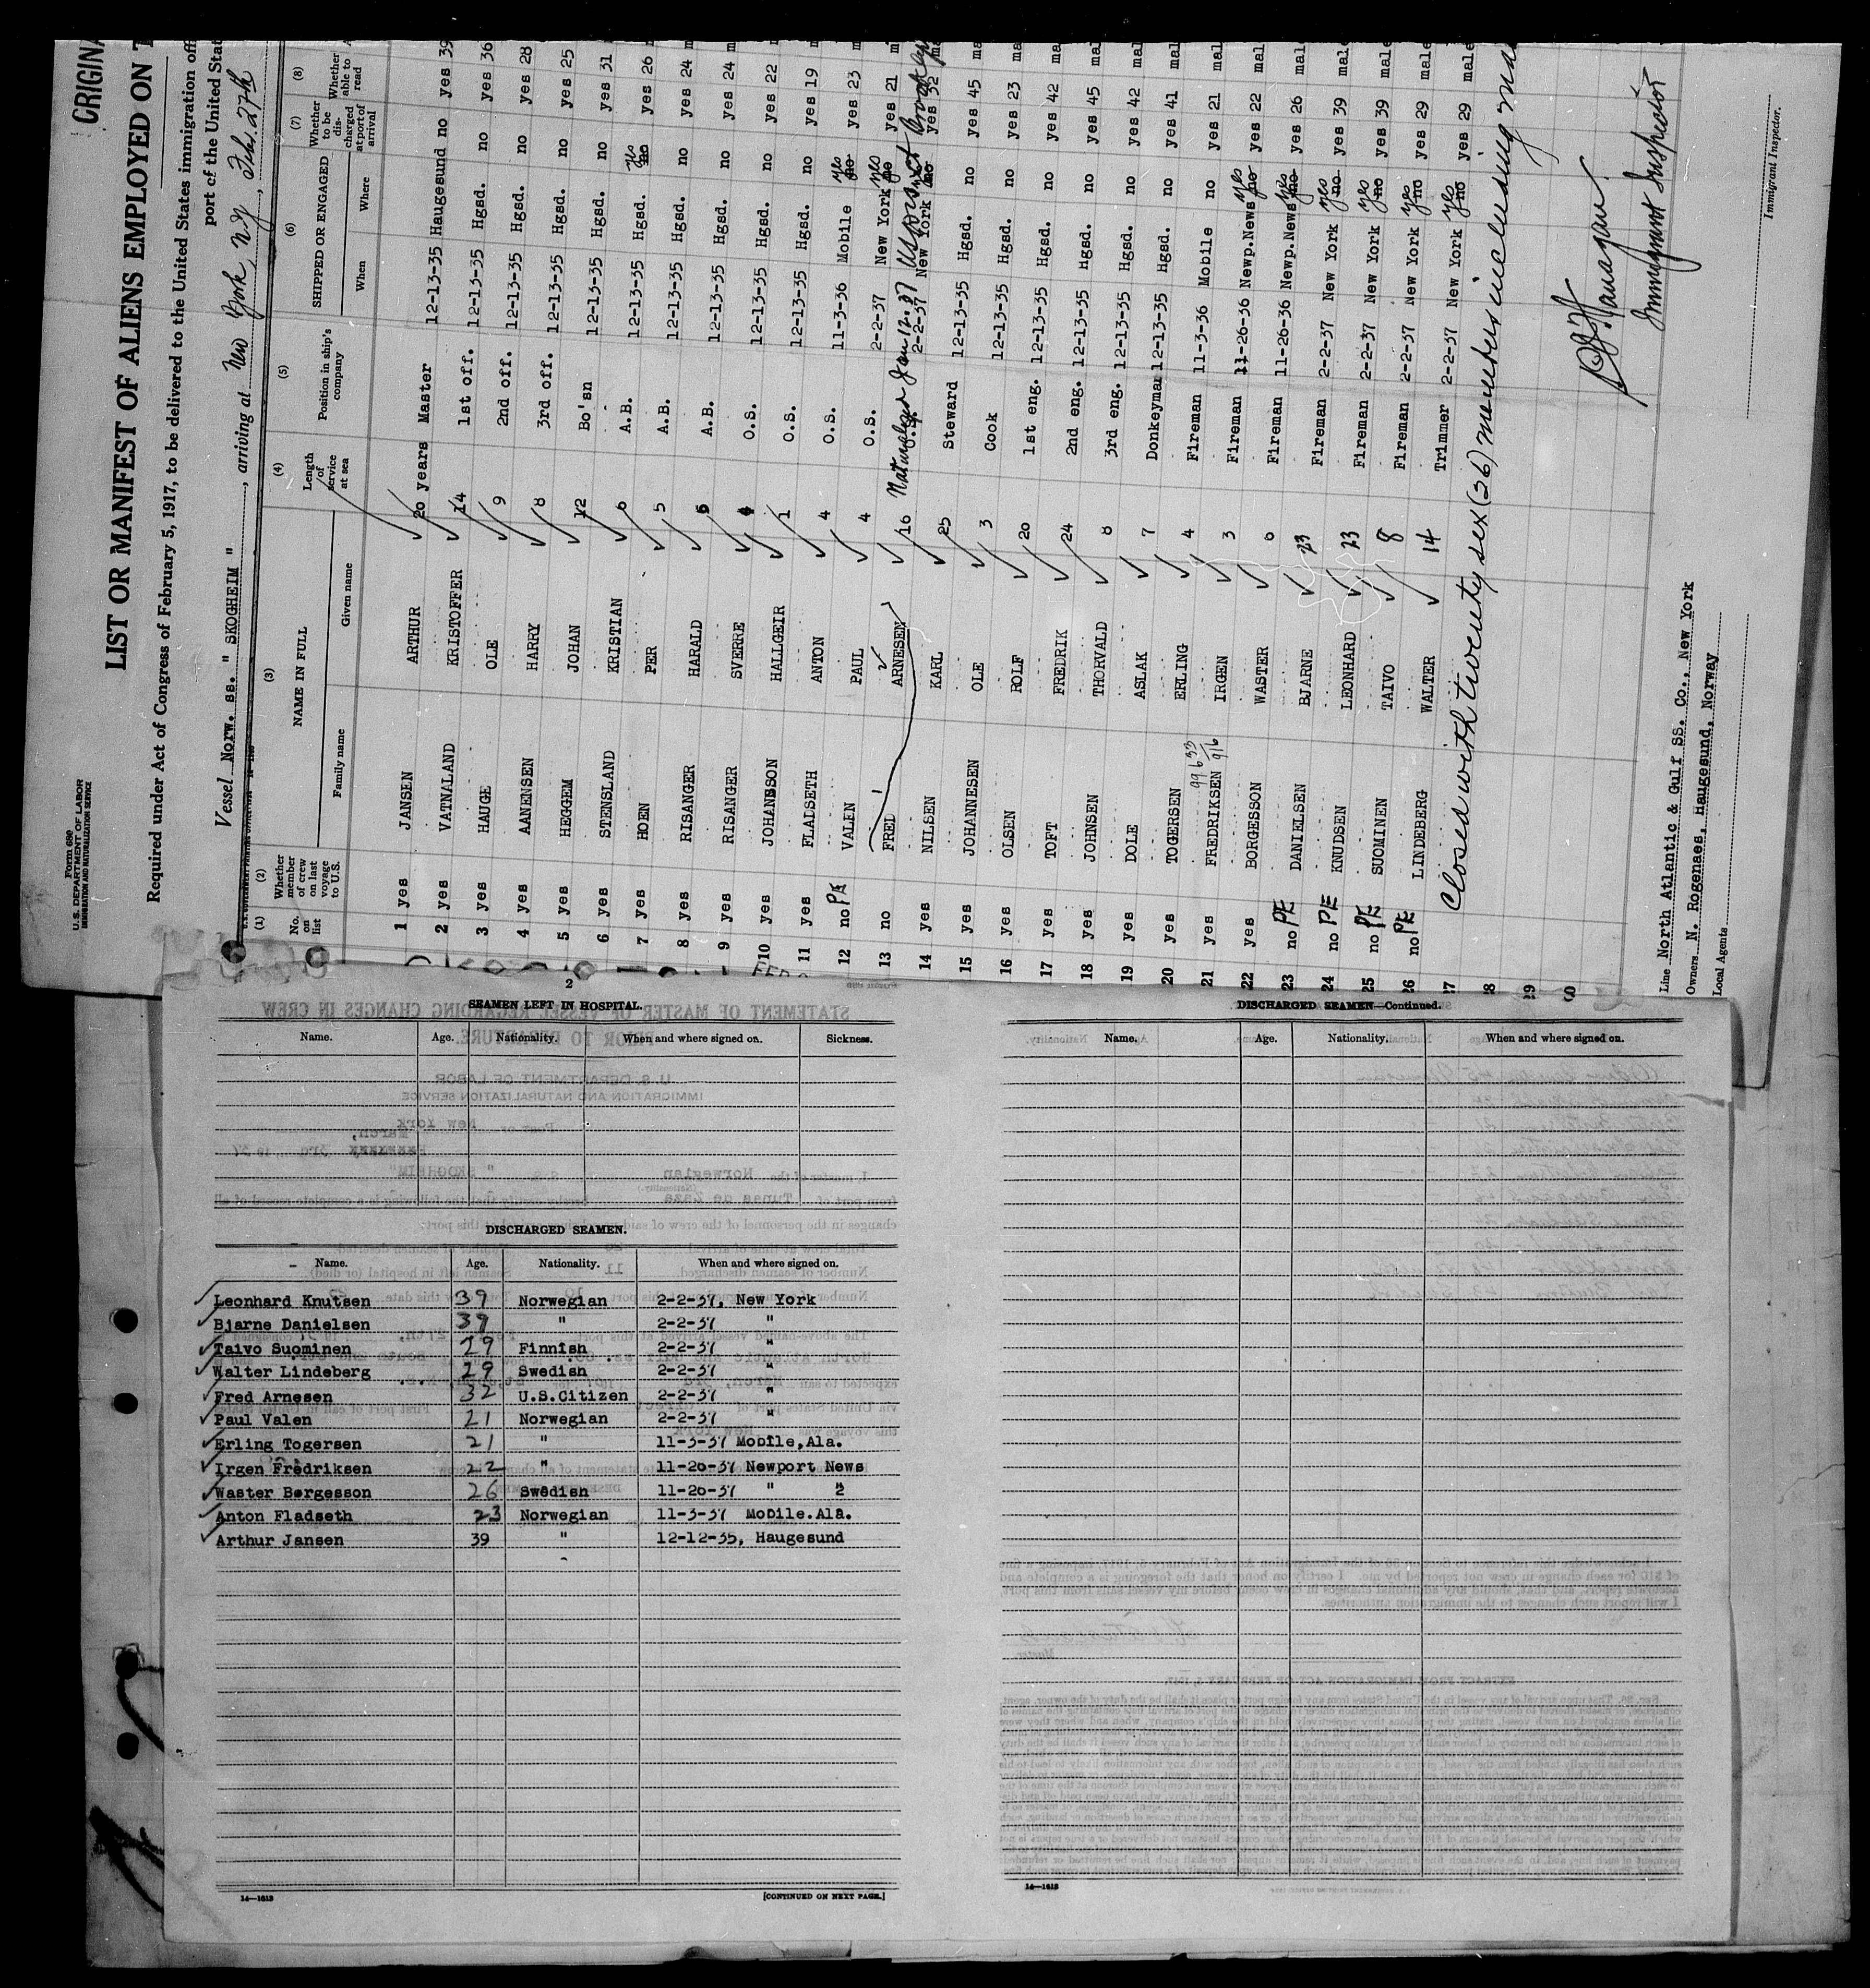 ORIGINA
Form 680
U.S. DEPARTMENT OF LABOR
IMMIGRATION AND NATURALIZATION SERVICE
LIST OR MANIFEST OF ALIENS EMPLOYED ON T
Required under Act of Congress of February 5, 1917, to be delivered to the United States immigration off
port of the United Stat
Vessel Norw. ss. " SKOGHEIM ", arriving at New York, N.Y., Feb. 27th
(1) (2) (3) (4) (5) (6) (7) (8)
No. on list Whether member of crew on last voyage to U.S. NAME IN FULL Length of service at sea Position in ship's company SHIPPED OR ENGAGED Whether to be discharged at port of arrival Whether able to read
Family name Given name When Where
1 yes JANSEN ARTHUR 20 years Master 12-13-35 Haugesund no yes 39
2 yes VATNALAND KRISTOFFER 14 1st off. 12-13-35 Hgsd. no yes 36
3 yes HAUGE OLE 9 2nd off. 12-13-35 Hgsd. no yes 28
4 yes AANENSEN HARRY 8 3rd off. 12-13-35 Hgsd. no yes 25
5 yes HEGGEM JOHAN 12 Bo'sn 12-13-35 Hgsd. no yes 31
6 yes STENSLAND KRISTIAN 6 A.B. 12-13-35 Hgsd. yes no yes 26
7 yes HOEN PER 5 A.B. 12-13-35 Hgsd. no yes 24 m
8 yes RISANGER HARALD 6 A.B. 12-13-35 Hgsd. no yes 24 m
9 yes RISANGER SVERRE 4 O.S. 12-13-35 Hgsd. no yes 22 m
10 yes JOHANSSON HALLGEIR 1 O.S. 12-13-35 Hgsd. no yes 19 m
11 yes FLADSETH ANTON 4 O.S. 11-3-36 Mobile yes no yes 23 m
12 no PE VALEN PAUL 4 O.S. 2-2-37 New York yes no yes 21 m
13 no FRED ARNESEN 16 O.S. 2-2-37 New York no yes 32 ma
Naturalized Jan 12-37 US Dist Ct Brooklyn
14 yes NILSEN KARL 25 Steward 12-13-35 Hgsd. no yes 45 ma
15 yes JOHANNESEN OLE 3 Cook 12-13-35 Hgsd. no yes 23 ma
16 yes OLSEN ROLF 20 1st eng. 12-13-35 Hgsd. no yes 42 ma
17 yes TOFT FREDRIK 24 2nd eng. 12-13-35 Hgsd. no yes 45 mal
18 yes JOHNSEN THORVALD 8 3rd eng. 12-13-35 Hgsd. no yes 42 mal
19 yes DOLE ASLAK 7 Donkeyman 12-13-35 Hgsd. no yes 41 mal
20 yes TOGERSEN ERLING 4 Fireman 11-3-36 Mobile no yes 21 mal
21 yes FREDRIKSEN 99633/916 IRGEN 3 Fireman 11-26-36 Newp.News yes no yes 22 mal
22 yes BORGESSON WASTER 6 Fireman 11-26-36 Newp.News yes no yes 26 mal
23 no PE DANIELSEN BJARNE 23 Fireman 2-2-37 New York yes no yes 39 male
24 no PE KNUDSEN LEONHARD 23 Fireman 2-2-37 New York yes no yes 39 male
25 no PE SUOMINEN TAIVO 8 Fireman 2-2-37 New York yes no yes 29 male
26 no PE LINDEBERG WALTER 14 Trimmer 2-2-37 New York yes no yes 29 male
27 Closed with twenty six (26) members including mas
28
29
30
Immigrant Inspector
Line North Atlantic & Gulf SS. Co., New York
Owners N. Rogenaes, Haugesund, Norway
Local Agents
Immigrant Inspector.
2
SEAMEN LEFT IN HOSPITAL.
Name. Age. Nationality. When and where signed on. Sickness.
DISCHARGED SEAMEN.
Name. Age. Nationality. When and where signed on.
Leonhard Knutsen 39 Norwegian 2-2-37, New York
Bjarne Danielsen 39 " 2-2-37 "
Taivo Suominen 29 Finnish 2-2-37 "
Walter Lindeberg 29 Swedish 2-2-37 "
Fred Arnesen 32 U.S.Citizen 2-2-37 "
Paul Valen 21 Norwegian 2-2-37 "
Erling Togersen 21 " 11-3-37 Mobile,Ala.
Irgen Fredriksen 22 " 11-26-37 Newport News
Waster Børgesson 26 Swedish 11-26-37 " "
Anton Fladseth 23 Norwegian 11-3-37 Mobile.Ala.
Arthur Jansen 39 " 12-12-35, Haugesund
14—1613
[CONTINUED ON NEXT PAGE.]
DISCHARGED SEAMEN—Continued.
Name. Age. Nationality. When and where signed on.
14—1613